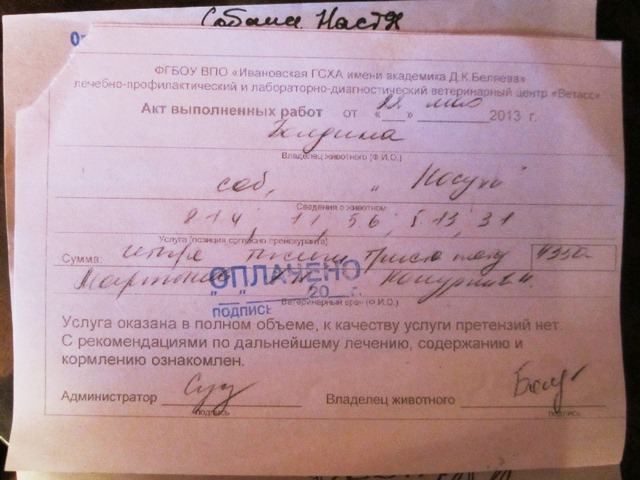 Собака Настя
ФГБОУ ВПО «Ивановская ГСХА имени академика Д.К.Беляева»
лечебно-профилактический и лабораторно-диагностический ветеринарный центр «Ветасс»
Акт выполненных работ от «22» мая 2013 г.
Владелец животного (Ф.И.О.)
соб,
Сведения о животном
814 11, 56, 5.13, 31
Услуга (позиция согласно прейскуранта)
Сумма: триста
ОПЛАЧЕНО
«__»____20__г.
ПОДПИСЬ
Ветеринарный врач (Ф.И.О.)
Услуга оказана в полном объеме, к качеству услуги претензий нет.
С рекомендациями по дальнейшему лечению, содержанию и
кормлению ознакомлен.
Администратор Владелец животного
подпись подпись